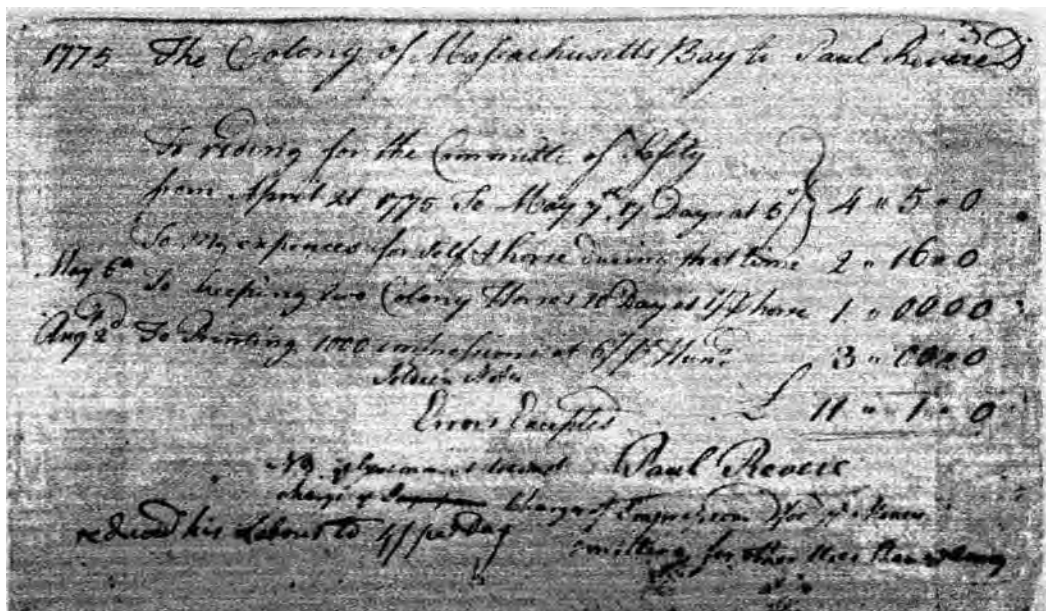 1775 The Colony of Massachusetts Bay to Paul Revere Dr
To riding for the Committe of Safty
from April 21 1775 To May 7th, 17 Days at 5/ 4 " 5 " 0
To My expences for self & horse during that time 2 " 16 " 0
May 6th To keeping two Colony Horses 10 Day at 1/ pr horse 1 " 00 00
Augt 2d To Printing 1000 impressions at 6/ pr Hund. 3 " 00 " 0
Soldiers Notes
Errors Excepted £ 11 " 1 " 0
Paul Revere
NB
charge of
reduced his Labour to 4/ per Day for other Uses